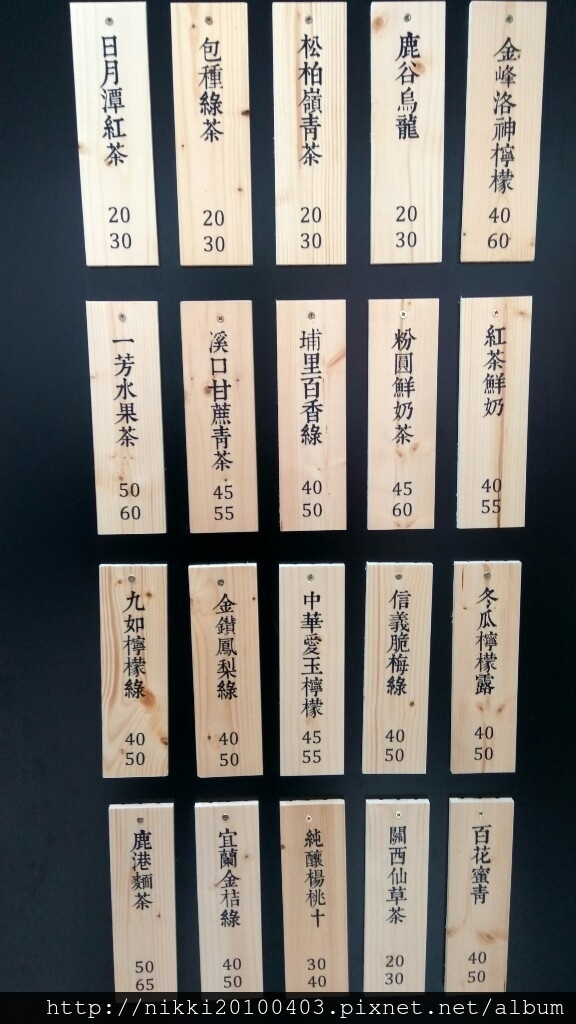 日月潭紅茶
20
30
包種綠茶
20
30
松柏嶺青茶
20
30
鹿谷烏龍
20
30
金峰洛神檸檬
40
60
一芳水果茶
50
60
溪口甘蔗青茶
45
55
埔里百香綠
40
50
粉圓鮮奶茶
45
60
紅茶鮮奶
40
55
九如檸檬綠
40
50
金鑽鳳梨綠
40
50
中華愛玉檸檬
45
55
信義脆梅綠
40
50
冬瓜檸檬露
40
50
鹿港麵茶
50
65
宜蘭金桔綠
40
50
純釀楊桃汁
30
40
關西仙草茶
20
30
百花蜜青
40
50
http://nikki20100403.pixnet.net/album